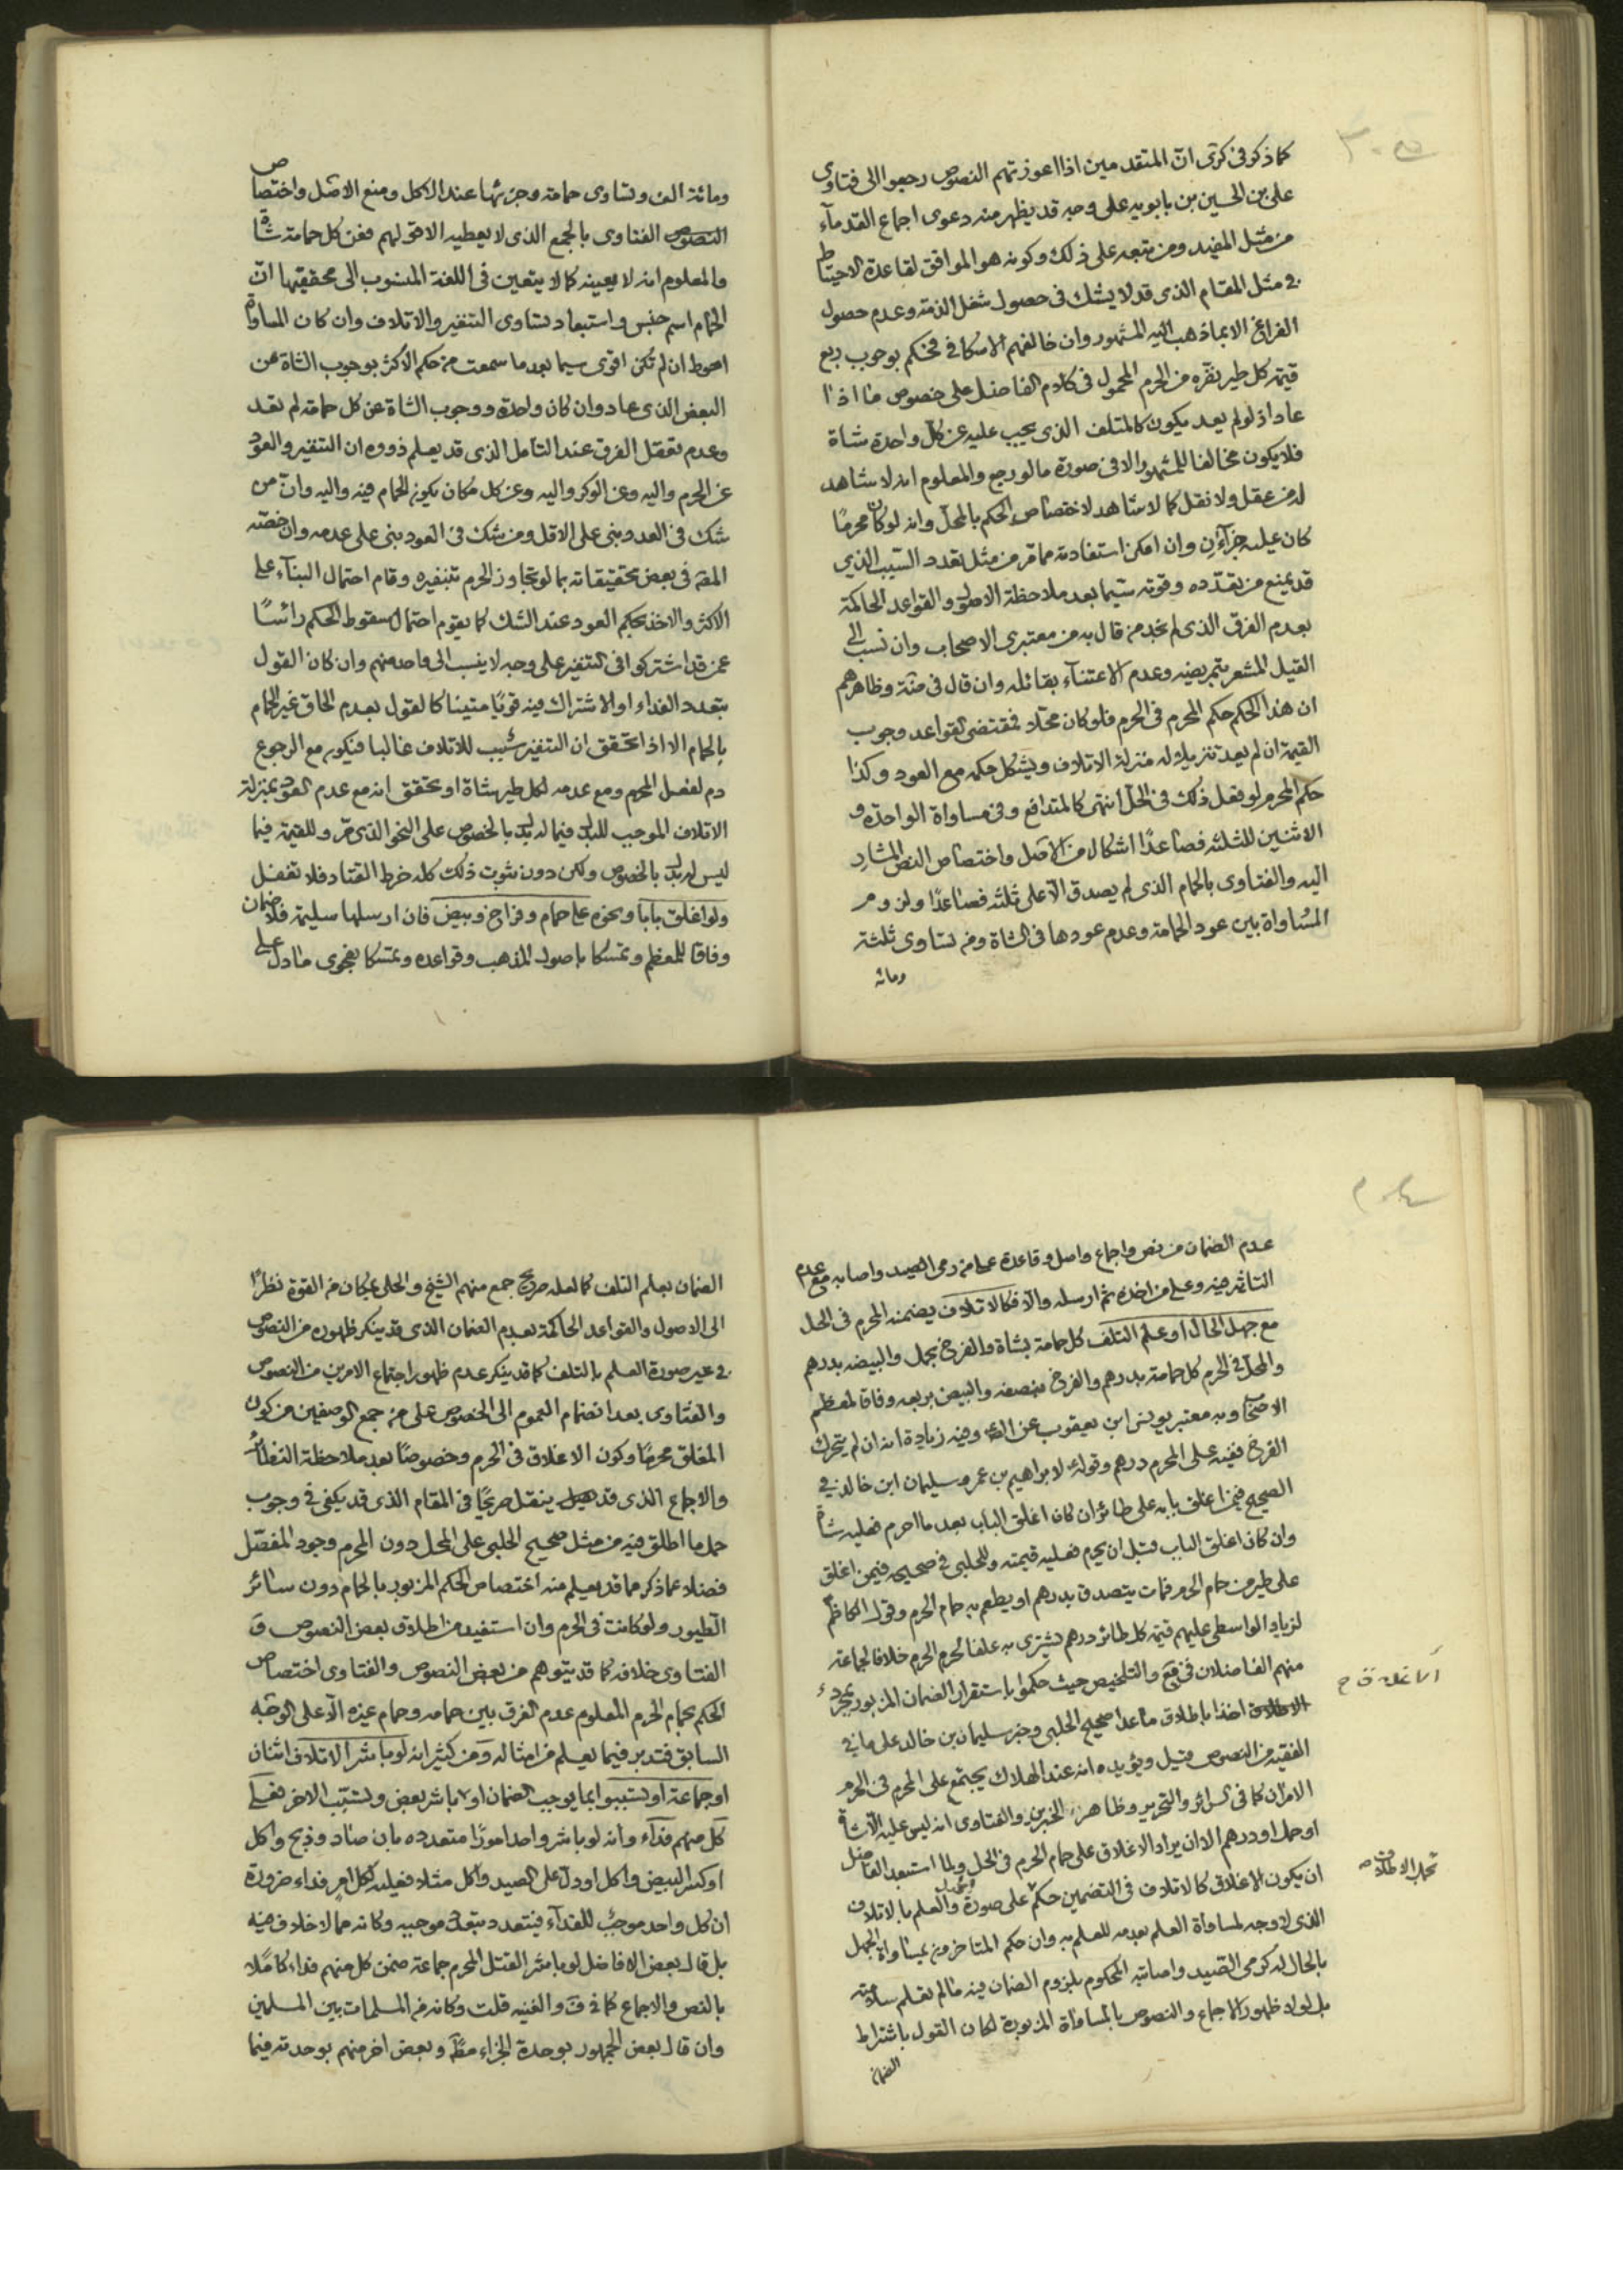 كما ذكر فى كرى ان المتقدمين اذا اعوزتهم النصوص رجعوا الى فتاوى
على بن الحسين بن بابويه على وجه قد يظهر منه دعوى اجماع القدمآء
من مثل المفيد ومن تبعه على ذلك وكونه هو الموافق لقاعدة الاحتياط
فى مثل المقام الذى قد لا يشك فى حصول شغل الذمة وعدم حصول
الفراغ الا بما ذهب اليه المشهور وان خالفهم الاسكافى فحكم بوجوب ربع
قيمة كل طير نفره من الحرم المحمول فى كلام الفاضل على خصوص ما اذا
عاد اذ لو لم يعد يكون كالمتلف الذى يجب عليه عن كل واحدة شاة
فلا يكون مخالفا للمشهور الا فى صورة ما لو رجع والمعلوم انه لا شاهد
له من عقل ولا نقل كما لا شاهد لاختصاص الحكم بالمحل وانه لو كان محرمًا
كان عليه جزآءان وان امكن استفادته مما مر من مثل تعدد السبب الذي
قد يمنع من تعدّده وقوته سيّما بعد ملاحظة الاصول والقواعد الحاكمة
بعدم الفرق الذى لم نجد من قال به من معتبرى الاصحاب وان نسب الى
القيل المشعر بتمريضه وعدم الاعتنآء بقائله وان قال فى ضة وظاهرهم
ان هذا الحكم حكم المحرم فى الحرم فلو كان محلّا فمقتضى القواعد وجوب
القيمة ان لم يعد تنزيلا له منزلة الاتلاف ويشكل حكمه مع العود وكذا
حكم المحرم لو فعل ذلك فى الحل انتهى كالمتدافع وفى مساواة الواحدة و
الاثنين للثلثة فصاعدًا اشكال من الاصل واختصاص النص المشار
اليه والفتاوى بالحمام الذى لم يصدق الّا على ثلثة فصاعدًا ولزوم
المساواة بين عود الحمامة وعدم عودها فى الشاة ومن تساوى ثلثة
ومائة
ومائة الف وتساوى حمامة وجزئها عند الاكل ومنع الاصل واختصاص
النصوص الفتاوى بالجمع الذى لا يعطيه الا قولهم فعن كل حمامة شاة
والمعلوم انه لا يعينه كما لا يتعين فى اللغة المنسوب الى محققيها ان
الحمام اسم جنس واستبعاد تساوى التنفير والاتلاف وان كان المساواة
احوط ان لم تكن اقوى سيما بعد ما سمعت من حكم الاكثر بوجوب الشاة عن
البعض الذى عاد وان كان واحدة ووجوب الشاة عن كل حمامة لم تعد
وعدم تعقل الفرق عند التامل الذى قد يعلم ذووه ان التنفير والعود
عن الحرم واليه وعن الوكر واليه وعن كل مكان يكون للحمام فيه واليه وان من
شك فى العدد بنى على الاقل ومن شك فى العود بنى على عدمه وان خصّه
المقه فى بعض تحقيقاته بما لو تجاوز الحرم بتنفيره وقام احتمال البنآء على
الاكثر والاخذ بحكم العود عند الشك كما يقوم احتمال سقوط الحكم رائسًا
عمن قد اشتركوا فى التنفير على وجه لا ينسب الى واحد منهم وان كان القول
بتعدد الفداء او الاشتراك فيه قويًا متينا كالقول بعدم الحاق غير الحمام
بالحمام الا اذا تحقق ان التنفير سبب للاتلاف غالبا فيكون مع الرجوع
دم لفعل المحرم ومع عدمه لكل طير شاة او تحقق انه مع عدم العود بمنزلة
الاتلاف الموجب للبدل فيما له بدل بالخصوص على النحو الذى مر وللقيمة فيما
ليس له بدل بالخصوص ولكن دون ثبوت ذلك كله خرط القتاد فلا تغفل
ولو اغلق بابا ونحوه على حمام وفراخ وبيض فان ارسلها سليمة فلا ضمان
وفاقا للمعظم وتمسكا باصول المذهب وقواعده وتمسكا بفحوى ما دل على
عدم الضمان من نص واجماع واصل وقاعدة عمن رمى الصيد واصابه مع عدم
التاثير فيه وعلى من اخذه ثم ارسله والّا فكالاتلاف يضمنه المحرم فى الحل
مع جهل الحال او علم التلف كل حمامة بشاة والفرخ بحمل والبيضه بدرهم
والمحل فى الحرم كل حمامة بدرهم والفرخ بنصفه والبيض بربعه وفاقا لمعظم
الاصحاب وبه معتبر يونس ابن يعقوب عن الصه وفيه زيادة انه ان لم يتحرك
الفرخ ففيه على المحرم درهم وقوله لابراهيم بن عمر وسليمان ابن خالد فى
الصحيح فيمن اغلق بابه على طائر ان كان اغلق الباب بعد ما احرم فعليه شاة
وان كان اغلق الباب قبل ان يحرم فعليه قيمته وللحلبى فى صحيحه فيمن اغلق
على طير من حمام الحرم فمات يتصدق بدرهم او يطعم به حمام الحرم وقول الكاظم
لزياد الواسطى عليهم قيمة كل طائر درهم يشترى به علفا لحمام الحرم خلافا لجماعة
منهم الفاضلان فى يع والتلخيص حيث حكموا باستقرار الضمان المزبور بمجرد
الاطلاق اخذا باطلاق ما عدا صحيح الحلبى وخبر سليمان بن خالد على ما فى
الفقيه من النصوص قيل ويؤيده انه عند الهلاك يجتمع على المحرم فى الحرم
الامران كما فى السرائر والتحرير وظاهر الخبرين والفتاوى انه ليس عليه الّا شاة
او حمل او درهم الا ان يراد الاغلاق على حمام الحرم فى الحل ولما استبعد الفاضل
ان يكون الاغلاق كالاتلاف فى التضمين حكم على صورة والعلم بالاتلاف
الذى لا وجه لمساواة العلم بعدمه للعلم به وان حكم المتاخرون بمساواة الجهل
بالحال له كرمى الصيد واصابته المحكوم بلزوم الضمان فيه ما لم تعلم سلامته
بل لولا ظهور الاجماع والنصوص بالمساواة المزبورة لكان القول باشتراط
الضمان
الضمان بعلم التلف كما لعله صريح جمع منهم الشيخ والحلى بمكان من القوة نظرًا
الى الاصول والقواعد الحاكمة بعدم الضمان الذى قد ينكر ظهوره من النصوص
فى غير صورة العلم بالتلف كما قد ينكر عدم ظهور اجتماع الامرين من النصوص
والفتاوى بعد انضمام العموم الى الخصوص على من جمع الوصفين من كون
المغلق محرمًا وكون الاغلاق فى الحرم وخصوصًا بعد ملاحظة النظائر
والاجماع الذى قد ينقل صريحًا فى المقام الذى قد يكفى فى وجوب
حمل ما اطلق فيه من مثل صحيح الحلبى على المحل دون المحرم وجود المفصّل
فضلا عما ذكر مما قد يعلم منه اختصاص الحكم المزبور بالحمام دون سائر
الطيور ولو كانت فى الحرم وان استفيد من اطلاق بعض النصوص و
الفتاوى خلافه كما قد يتوهم من بعض النصوص والفتاوى اختصاص
الحكم بحمام الحرم المعلوم عدم الفرق بين حمامه وحمام غيره الّا على الوجه
السابق فتدبر فيما يعلم من امثاله ومن كثير انه لو باشر الاتلاف اثنان
او جماعة او تسببوا بما يوجب الضمان او باشر بعض وتسبّب الاخر فعلى
كل منهم فدآء وانه لو باشر واحد امورًا متعدده بان صاد وذبح واكل
او كسر البيض واكل او دل على الصيد واكل مثلا فعليه لكل امرٍ فداء ضرورة
ان كل واحد موجب للفدآء فيتعدد بتعدد موجبه وكانه مما لا خلاف فيه
بل قال بعض الافاضل لو باشر القتل المحرم جماعة ضمن كل منهم فداء كاملا
بالنص والاجماع كما فى ف والغنيه قلت وكانه من المسلمات بين المسلمين
وان قال بعض الجمهور بوحدة الجزاء مطّه وبعض اخر منهم بوحدته فيما